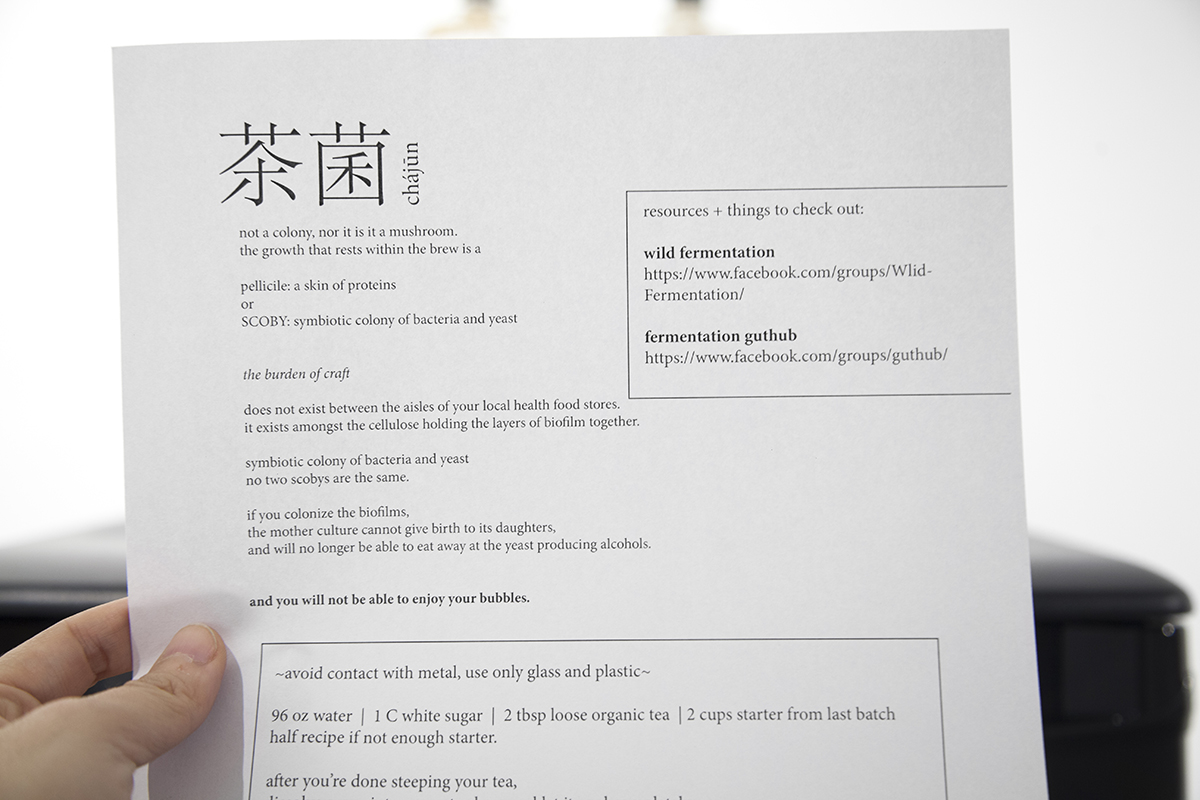 茶菌 chájūn
not a colony, nor it is it a mushroom.
the growth that rests within the brew is a
pellicile: a skin of proteins
or
SCOBY: symbiotic colony of bacteria and yeast
the burden of craft
does not exist between the aisles of your local health food stores.
it exists amongst the cellulose holding the layers of biofilm together.
symbiotic colony of bacteria and yeast
no two scobys are the same.
if you colonize the biofilms,
the mother culture cannot give birth to its daughters,
and will no longer be able to eat away at the yeast producing alcohols.
and you will not be able to enjoy your bubbles.
resources + things to check out:
wild fermentation
https://www.facebook.com/groups/Wlid-
Fermentation/
fermentation guthub
https://www.facebook.com/groups/guthub/
~avoid contact with metal, use only glass and plastic~
96 oz water | 1 C white sugar | 2 tbsp loose organic tea | 2 cups starter from last batch
half recipe if not enough starter.
after you're done steeping your tea,